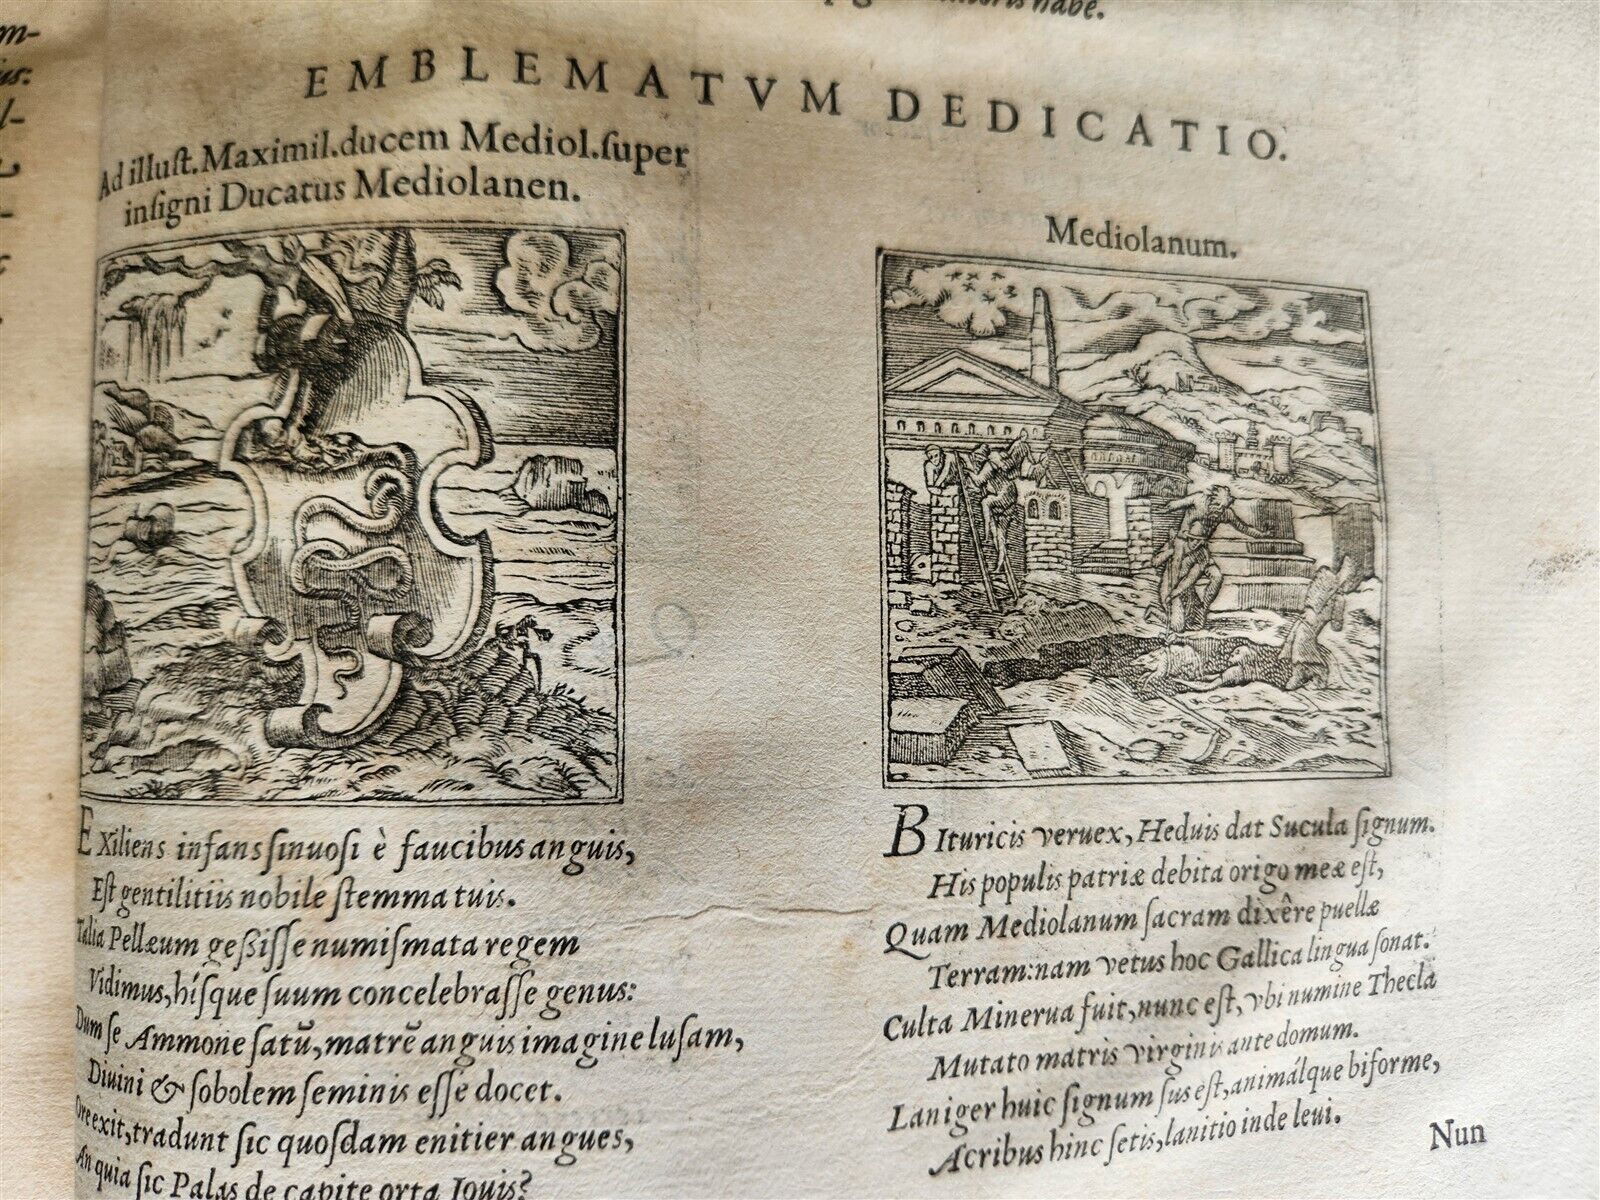 m-
us:
l-
habe.
EMBLEMATVM DEDICATIO.
Ad illuſt. Maximil. ducem Mediol. ſuper
inſigni Ducatus Mediolanen.
EXiliens infans ſinuoſi è faucibus anguis,
Eſt gentilitiis nobile ſtemma tuis.
Talia Pellæum geſsiſſe numiſmata regem
Vidimus, hiſque ſuum concelebraſſe genus:
Dum ſe Ammone ſatũ, matrẽ anguis imagine luſam,
Diuini & ſobolem ſeminis eſſe docet.
Ore exit, tradunt ſic quoſdam enitier angues,
An quia ſic Palas de capite orta Iouis?
Mediolanum.
BIturicis veruex, Heduis dat Sucula ſignum.
His populis patriæ debita origo meæ eſt,
Quam Mediolanum ſacram dixêre puellæ
Terram: nam vetus hoc Gallica lingua ſonat.
Culta Minerua fuit, nunc eſt, vbi numine Thecla
Mutato matris virginis ante domum.
Laniger huic ſignum ſus eſt, animálque biforme,
Acribus hinc ſetis, lanitio inde leui.
Nun